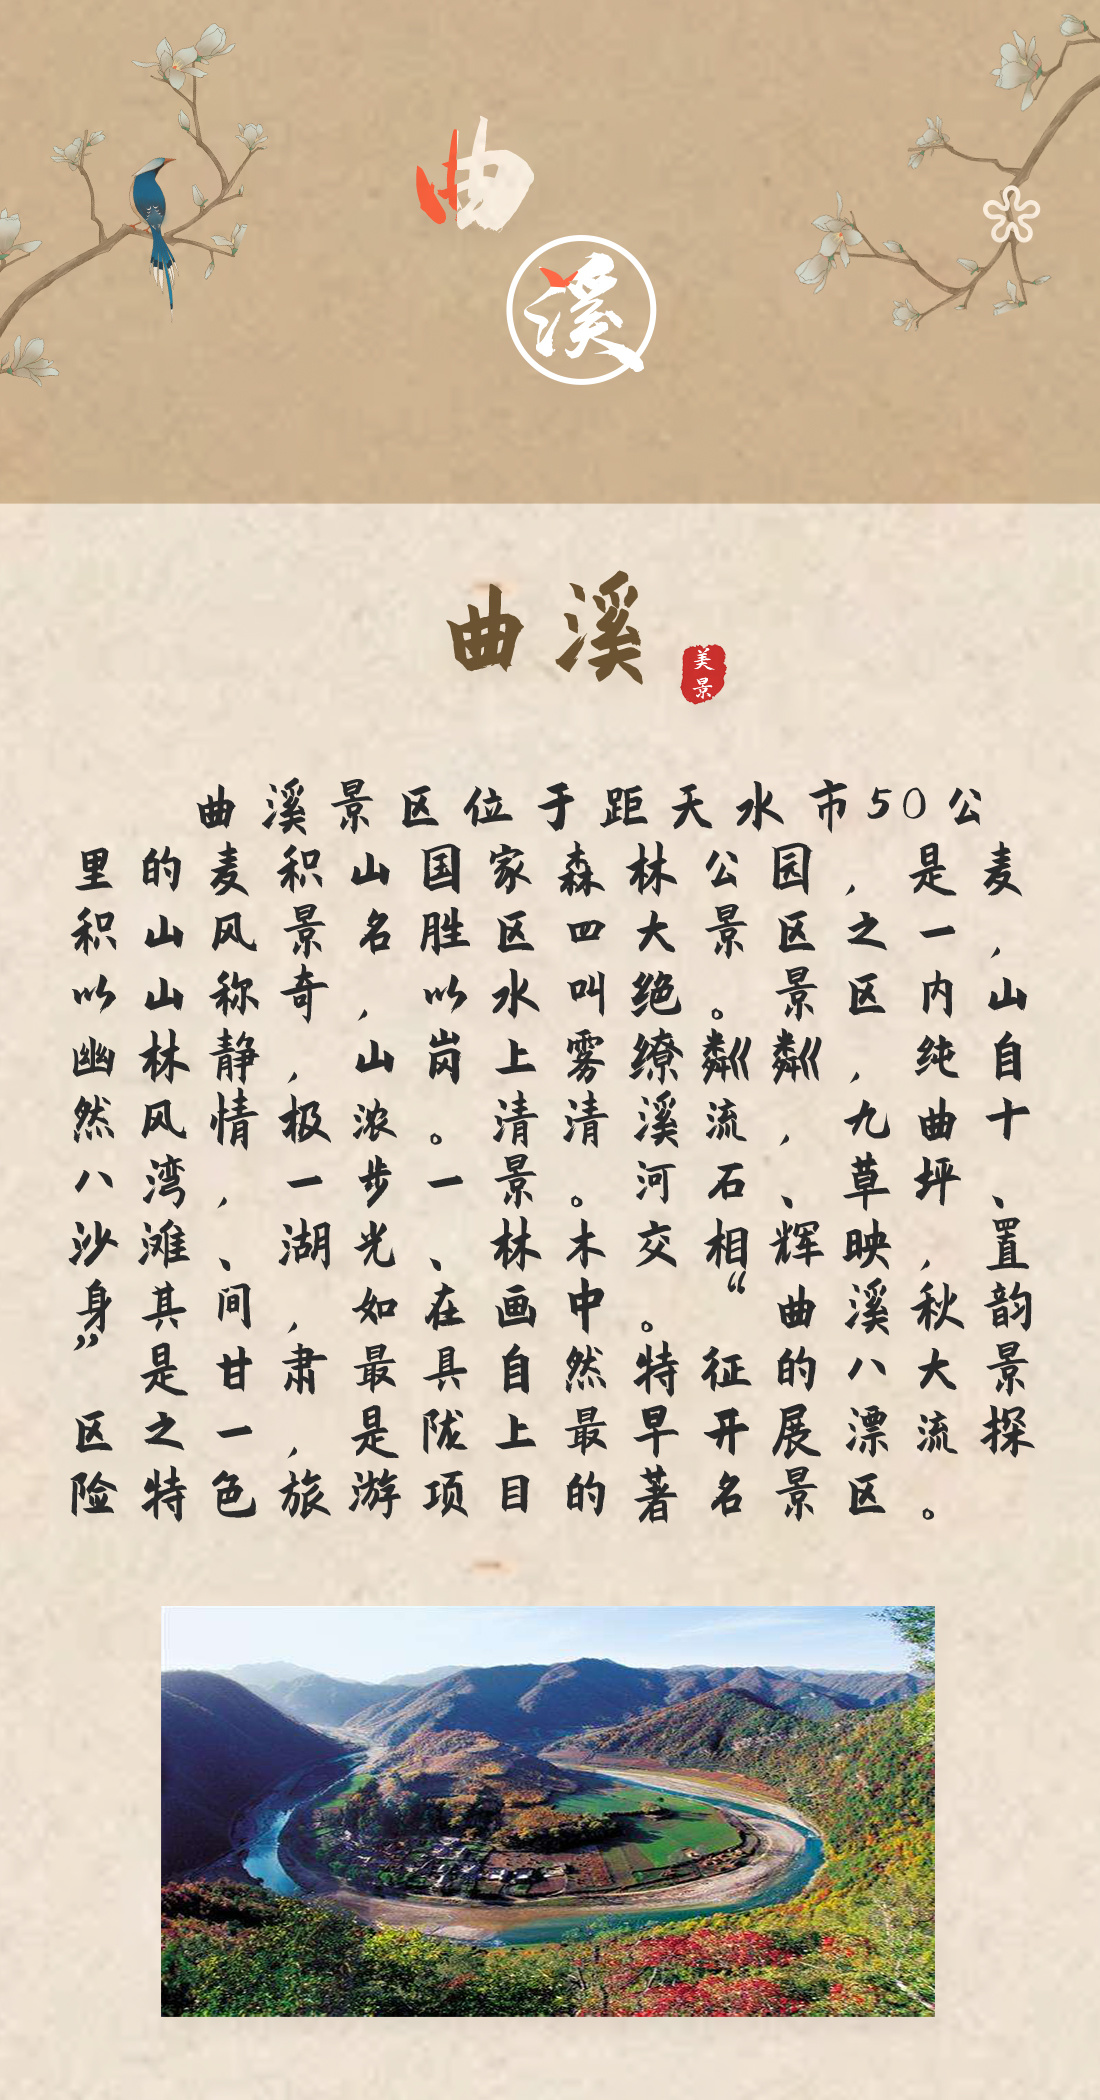 曲
溪
曲溪
美
景
曲溪景区位于距天水市50公
里的麦积山国家森林公园，是麦
积山风景名胜区四大景区之一，
以山称奇，以水叫绝。景区内山
幽林静，山岗上雾缭粼粼，纯自
然风情极浓。清清溪流，九曲十
八湾，一步一景。河石、草坪、
沙滩、湖光、林木交相辉映，置
身其间，如在画中。“曲溪秋韵
”是甘肃最具自然特征的八大景
区之一，是陇上最早开展漂流探
险特色旅游项目的著名景区。